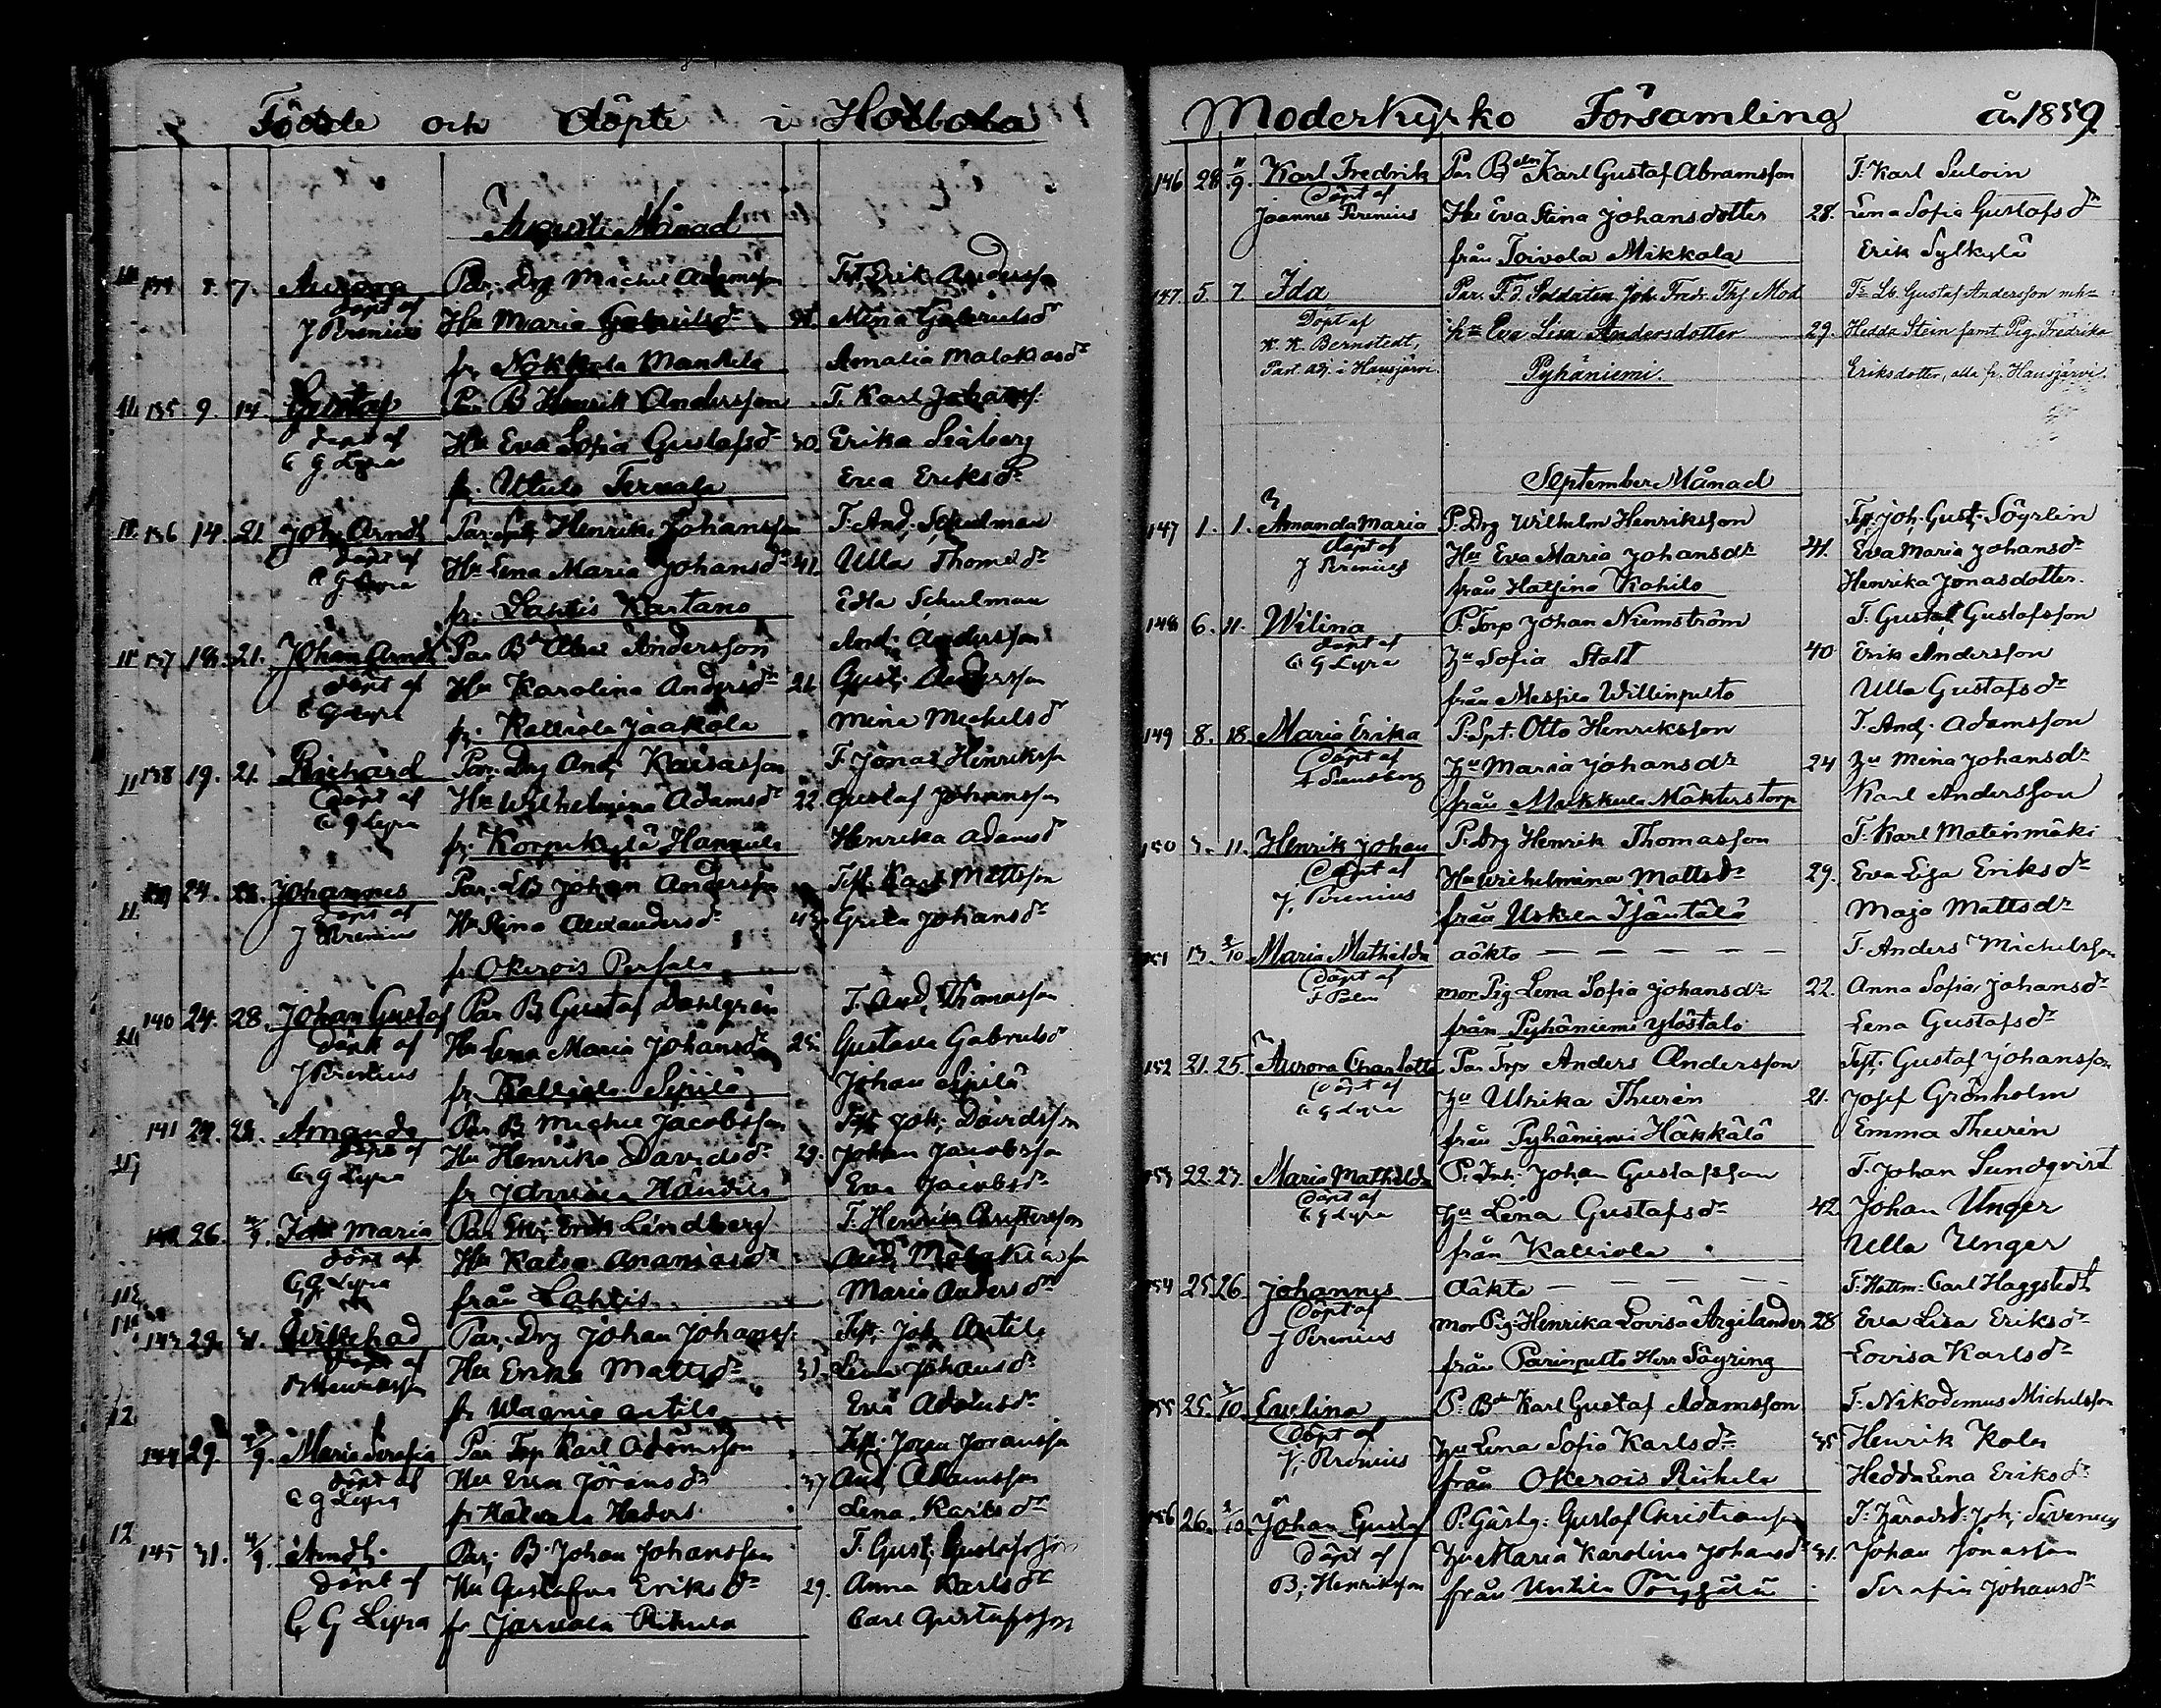 Födde och döpte i Hollola
Augusti Månad
134 7. Aurora Par. Drg Michel Adamsson Erik Andersson
döpt af J Perenius Hu Maria Gabrielsdr Mina Gabrielsdr
fr. Nokkola Mandila Amalia Malakiasdr
135 9. 14 Gustaf Par B Henrik Andersson T. Karl Johans.
döpt af C G Lyra Hu Eva Sofia Gustafsdr 30. Erika Seåberg
fr. Utula Tervala Eva Eriksdr
136 14. 21 Joh. Arndt Par. Henrik Johansson T. And. Schulman
döpt af C G Lyra Hu Lena Maria Johansdr 41. Ulla Thomedr
fr. Lahtis Kartano Edla Schulman
137 18. 21. Johan Arndt Par Bd Andersson And. Andersson
döpt af C G Lyra Hu Karolina Andersdr 21. Gust. Andersson
fr. Kalliola Jaakola Mina Michelsdr
138 19. 21. Richard Par. Drg And. Kaisasson T. Jonas Henriksson
döpt af C G Lyra Hu Wilhelmina Adamsdr 22. Gustaf Johansson
fr. Korpikylä Hannula Henrika Adamsdr
24. 28. Johannes Par. LB Johan Andersson Test. Karl Mattsson
döpt af J Perenius Hu Stina Alexandersdr 43 Greta Johansdr
fr Okerois Persala
140 24. 28. Johan Gustaf Par B Gustaf Dahlgren T. And. Thomasson
döpt af J Perenius Hu Lena Maria Johansdr 25. Gustava Gabrielsdr
fr. Kalliola Sipilä Johan Sipilä
141 24. 28. Amanda Par B Michel Jacobsson Test. Joh. Davidsson
döpt af C G Lyra Hu Henrika Davidsdr 29. Johan Jacobsson
fr Eva Jacobsdr
142 26. 4/9. Ida Maria Par Erik Lindberg T. Henrik Christersson
döpt af C G Lyra Hu Kaisa Ananiasdr And. Malakiasson
från Lahtis Maria Andersdr
143 29. 31. Willehad Par. Drg Johan Johanss. Test. Joh. Antila
döpt af Hu Erika Mattsdr 31. Lena Johansdr
fr Wagnio Antila Eva Adamsdr
144 29. 4/9. Maria Serafia Par Torp Karl Adamsson Test. Joran Joransson
döpt af C G Lyra Hu Eva Joransdr 37 And. Adamsson
fr Lena Karlsdr
145 31. 4/9. Arndt. Par. B. Johan Johansson T. Gust. Gustafsson
döpt af C G Lyra Hu Gustafva Eriksdr 29. Anna Karlsdr
fr Jarvala Rikula Carl Gustafsson
Moderkyrko Församling år 1859
146 28 11/9. Karl Fredrik Par Bden Karl Gustaf Abramsson T. Karl Suloin
döpt af Joannes Perenius Hu Eva Stina Johansdotter 28. Lena Sofia Gustafsdr
från Toivola Mikkola Erik Sylkylä
147. 5. 7. Ida Par. F.d. Soldaten Joh. Fredr. Thj. Mod Ts Lb. Gustaf Andersson
Döpt af K. K. Bernstedt, hu Eva Lisa Andersdotter 29. Hedda Stein samt Pig. Fredrika
Past. adj. i Hausjärvi. Pyhäniemi. Eriksdotter, alla fr. Hausjärvi.
September Månad
147 1. 1. Amanda Maria P. Drg Wilhelm Henriksson Test. Joh. Gust. Söyrlin
döpt af J Perenius Hu Eva Maria Johansdr 44. Eva Maria Johansdr
från Hatsina Kahilo Henrika Jonasdotter.
148 6. 11. Wilina P. Torp Johan Niemström T. Gustaf Gustafsson
döpt af C G Lyra Hu Sofia Stolt 40 Erik Andersson
från Messila Willinpelto Ulla Gustafsdr
149 8. 18. Maria Erika P. Spt. Otto Henriksson T. And. Adamsson
Döpt af Hu Maria Johansdr 24 Hu Mina Johansdr
från Mukkula Mäkterstorp Karl Andersson
150 11. Henrik Johan P. Drg Henrik Thomasson T. Karl Matinmäki
Döpt af J. Perenius Hu Wilhelmina Mattsdr 29. Eva Lisa Eriksdr
från Uskila Isäntälä Maja Mattsdr
151 13. 2/10 Maria Mathilda oäkta — — — — — T. Anders Michelsson
Döpt af mor Pig Lena Sofia Johansdr 22. Anna Sofia Johansdr
från Pyhäniemi Ylöstalo Lena Gustafsdr
152 21. 25. Aurora Charlotta Par Torp Anders Andersson Test. Gustaf Johansson
Döpt af C G Lyra Hu Ulrika Thurén 21. Josef Grönholm
från Pyhäniemi Häkkälä Emma Thurén
153 22. 27. Maria Mathilda P. Inh. Johan Gustafsson T. Johan Sundqvist
Döpt af C G Lyra Hu Lena Gustafsdr 42. Johan Unger
från Kalliola Ulla Unger
154 25 26. Johannes Oäkta — — — — — T. Hattm. Carl Haggstedt
Döpt af J Perenius mor Pig. Henrika Lovisa Argilander 28 Eva Lisa Eriksdr
från Parinpelto Herr Säyring Lovisa Karlsdr
155 25. 2/10 Evelina P. Bd Karl Gustaf Adamsson T. Nikodemus Michelsson
Döpt af J. Perenius Hu Lena Sofia Karlsdr 35 Henrik Kola
från Okerois Rikila Hedda Lena Eriksdr
156 26. 2/10 Johan Gustaf P. Gårdg. Gustaf Christiansson T. Häradsd. Joh. Sivenius
Döpt af B. Henriksson Hu Maria Karolina Johansdr 31. Johan Jonasson
från Untila Serafia Johansdr